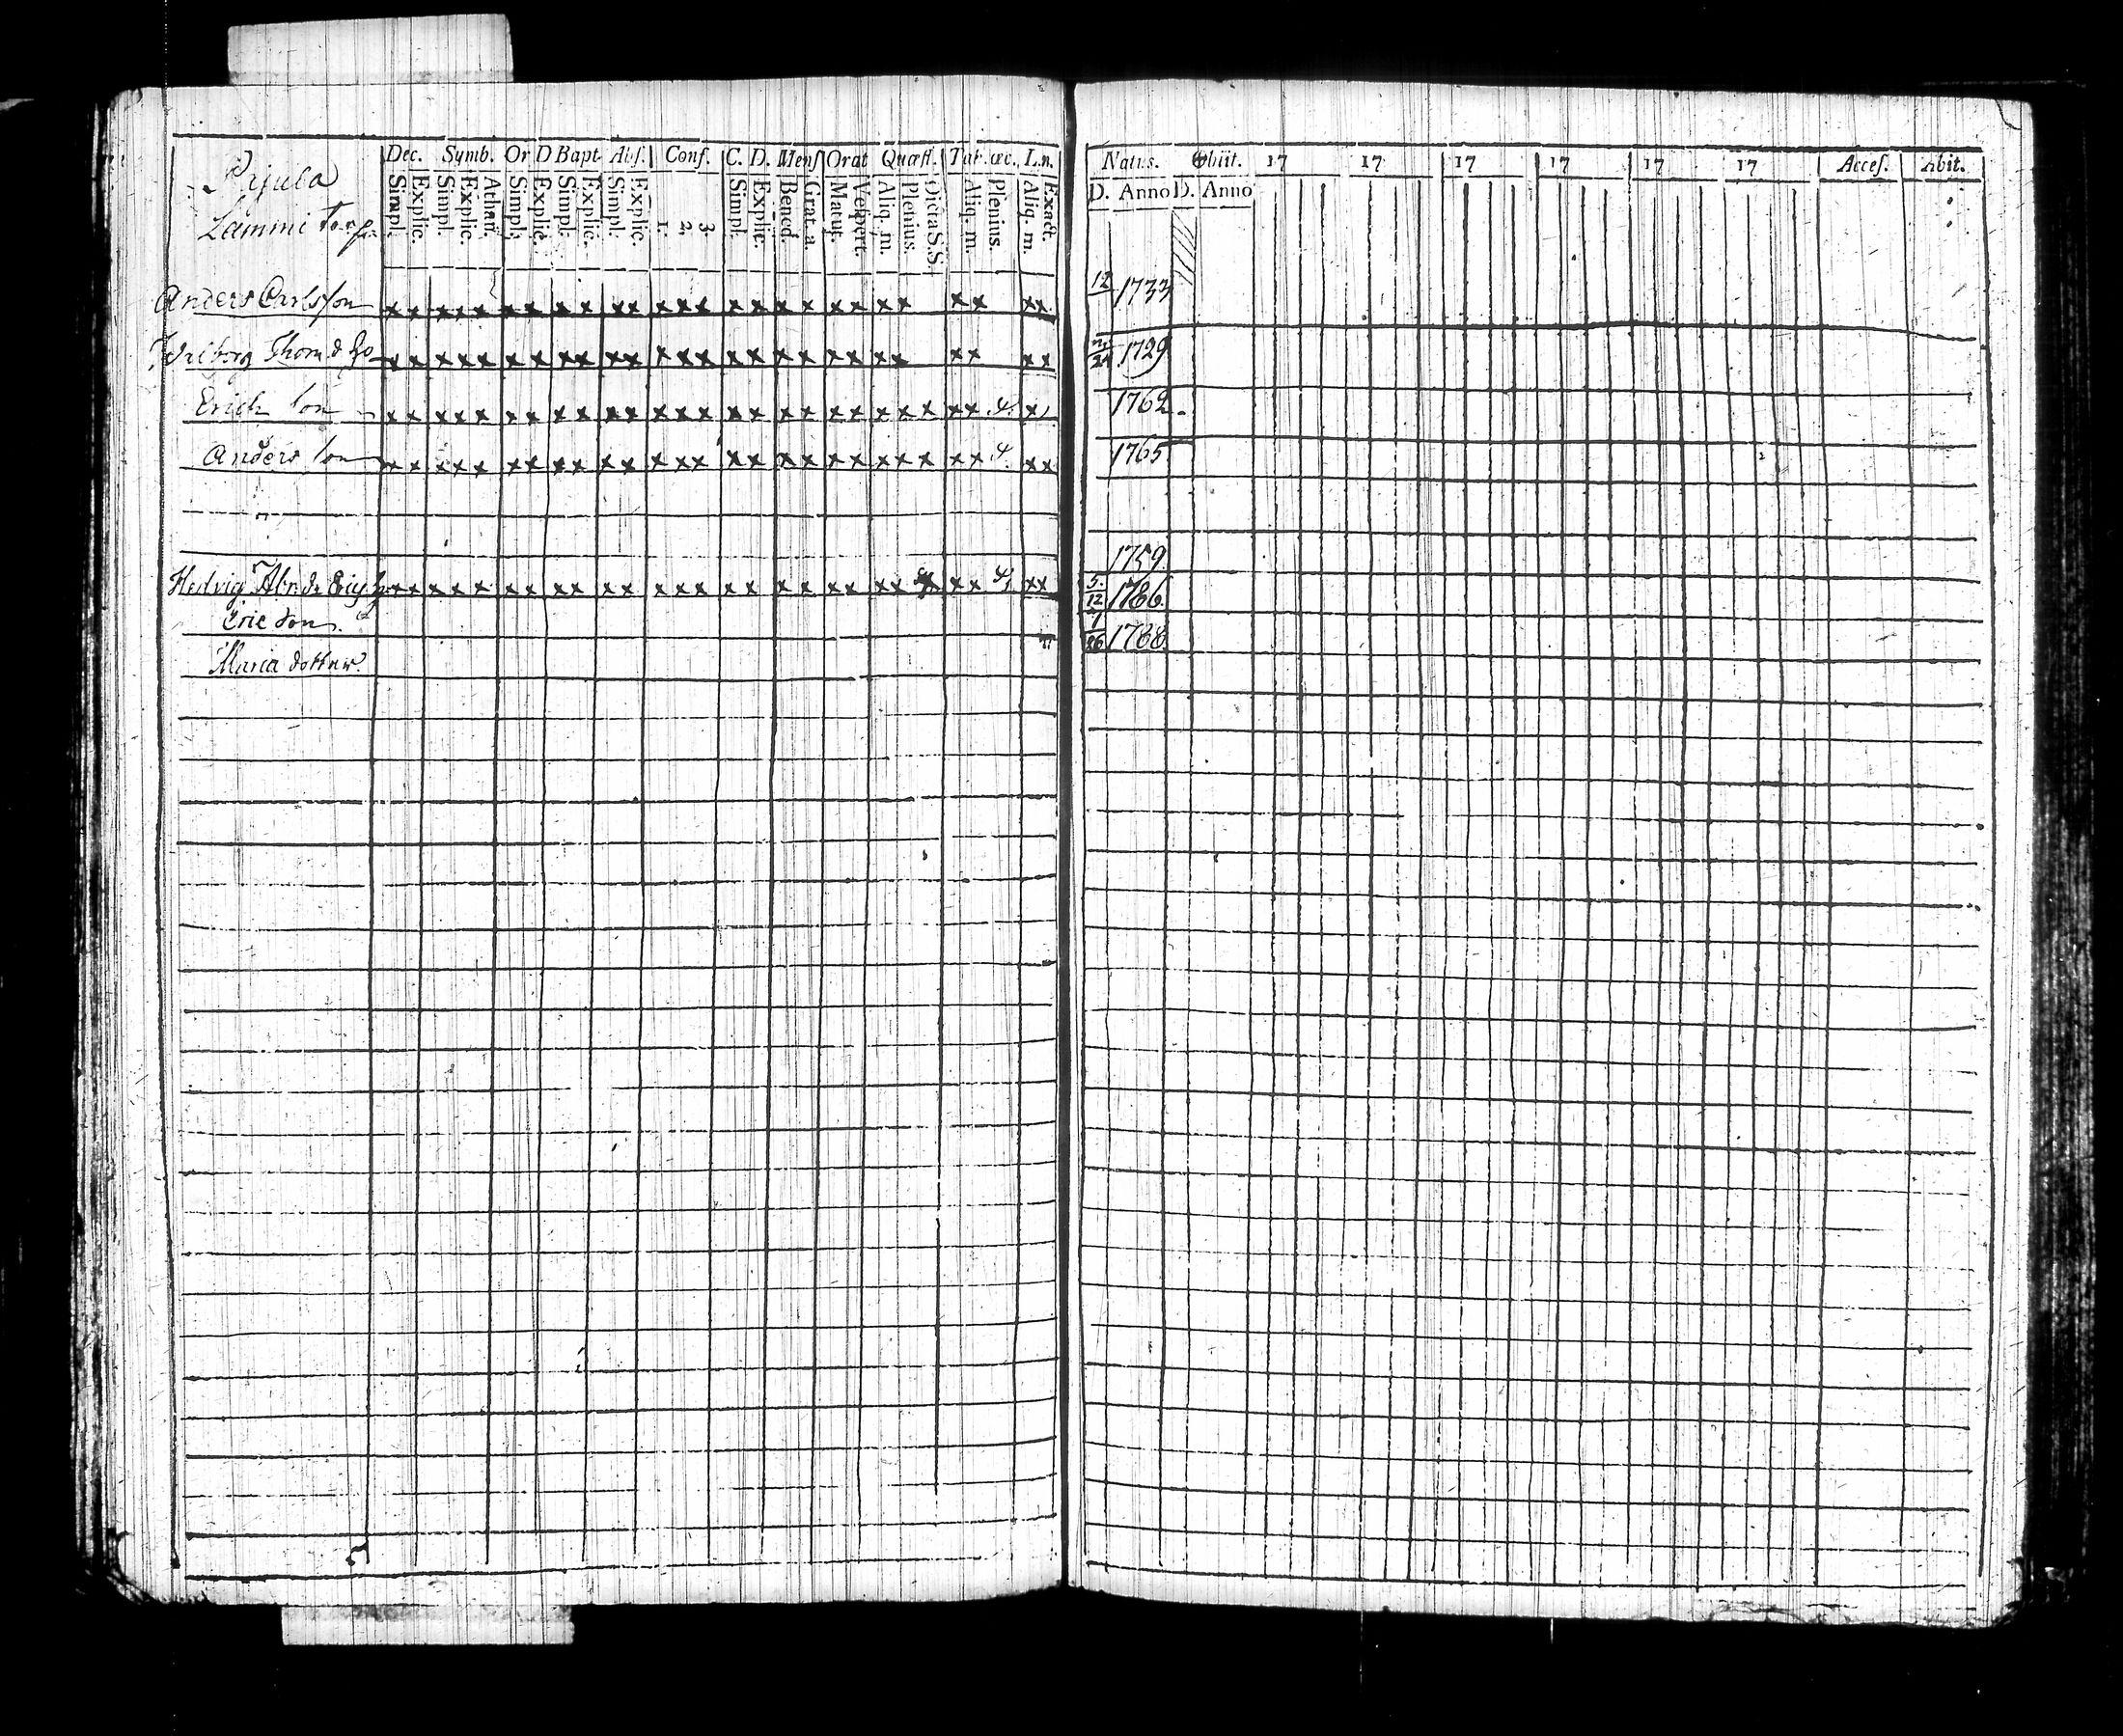 Dec. Symb. Or D Bapt. Abs. Conf. C. D. Mens Orat Quæst. Tab. œc. L.n.
Simpl. Explic. Simpl. Explic. Athan. Simpl. Explic. Simpl. Explic. Simpl. Explic. 1. 2. 3. Simpl. Explic. Bened. Grat. a. Matut. Vespert. Aliq. m. Plenius. Dicta S.S. Aliq. m. Plenius. Aliq. m. Exact.
Lammi torp
Anders Carlsson x x x x x x x x x x x x x x x x x x x x x x x x x x
Thom. d
Erich son x x x x x x x x x x x x x x x x x x x x x x x x x x
Anders son x x x x x x x x x x x x x x x x x x x x x x x x x x x
Hedvig Abr. d. x x x x x x x x x x x x x x x x x x x x x x x x x x
Eric son.
Maria dotter.
Natus. Obiit. 17 17 17 17 17 17 Acces. Abit.
D. Anno D. Anno
12 1733
24 1729
1762
1765
1759.
5 12 1786.
1 26 1788.